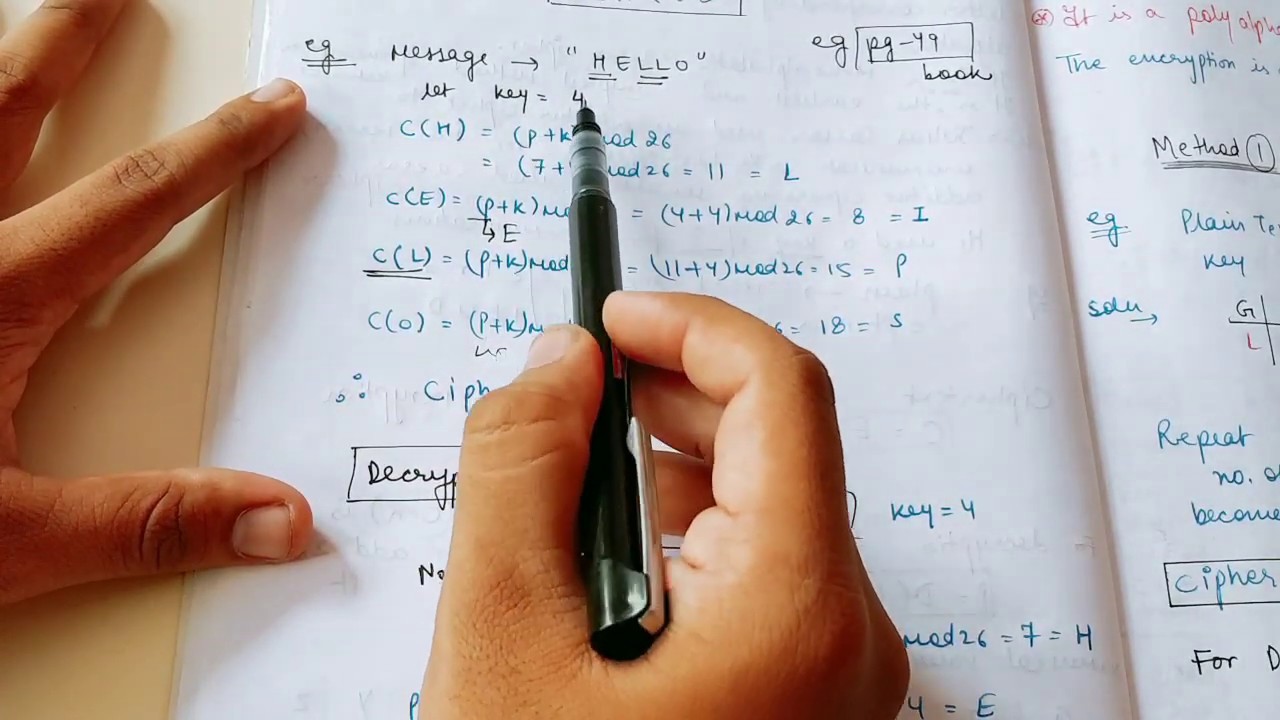 eg Message → "HELLO" eg pg-49
book
let key = 4
C(H) = (P+K) mod 26
= (7+ mod 26 = 11 = L
C(E) = (P+K) mo = (4+4) mod 26 = 8 = I
↳ E
C(L) = (P+K) mod = (11+4) mod 26 = 15 = P
C(O) = (P+K) mo = 18 = S
∴ Ciph
Decryp
key = 4
No
mod 26 = 7 = H
4 = E
It is a poly alpha
The encryption is
Method ①
eg Plain Te
key
soluⁿ → G
L
Repeat
no. of
become
Cipher
For D